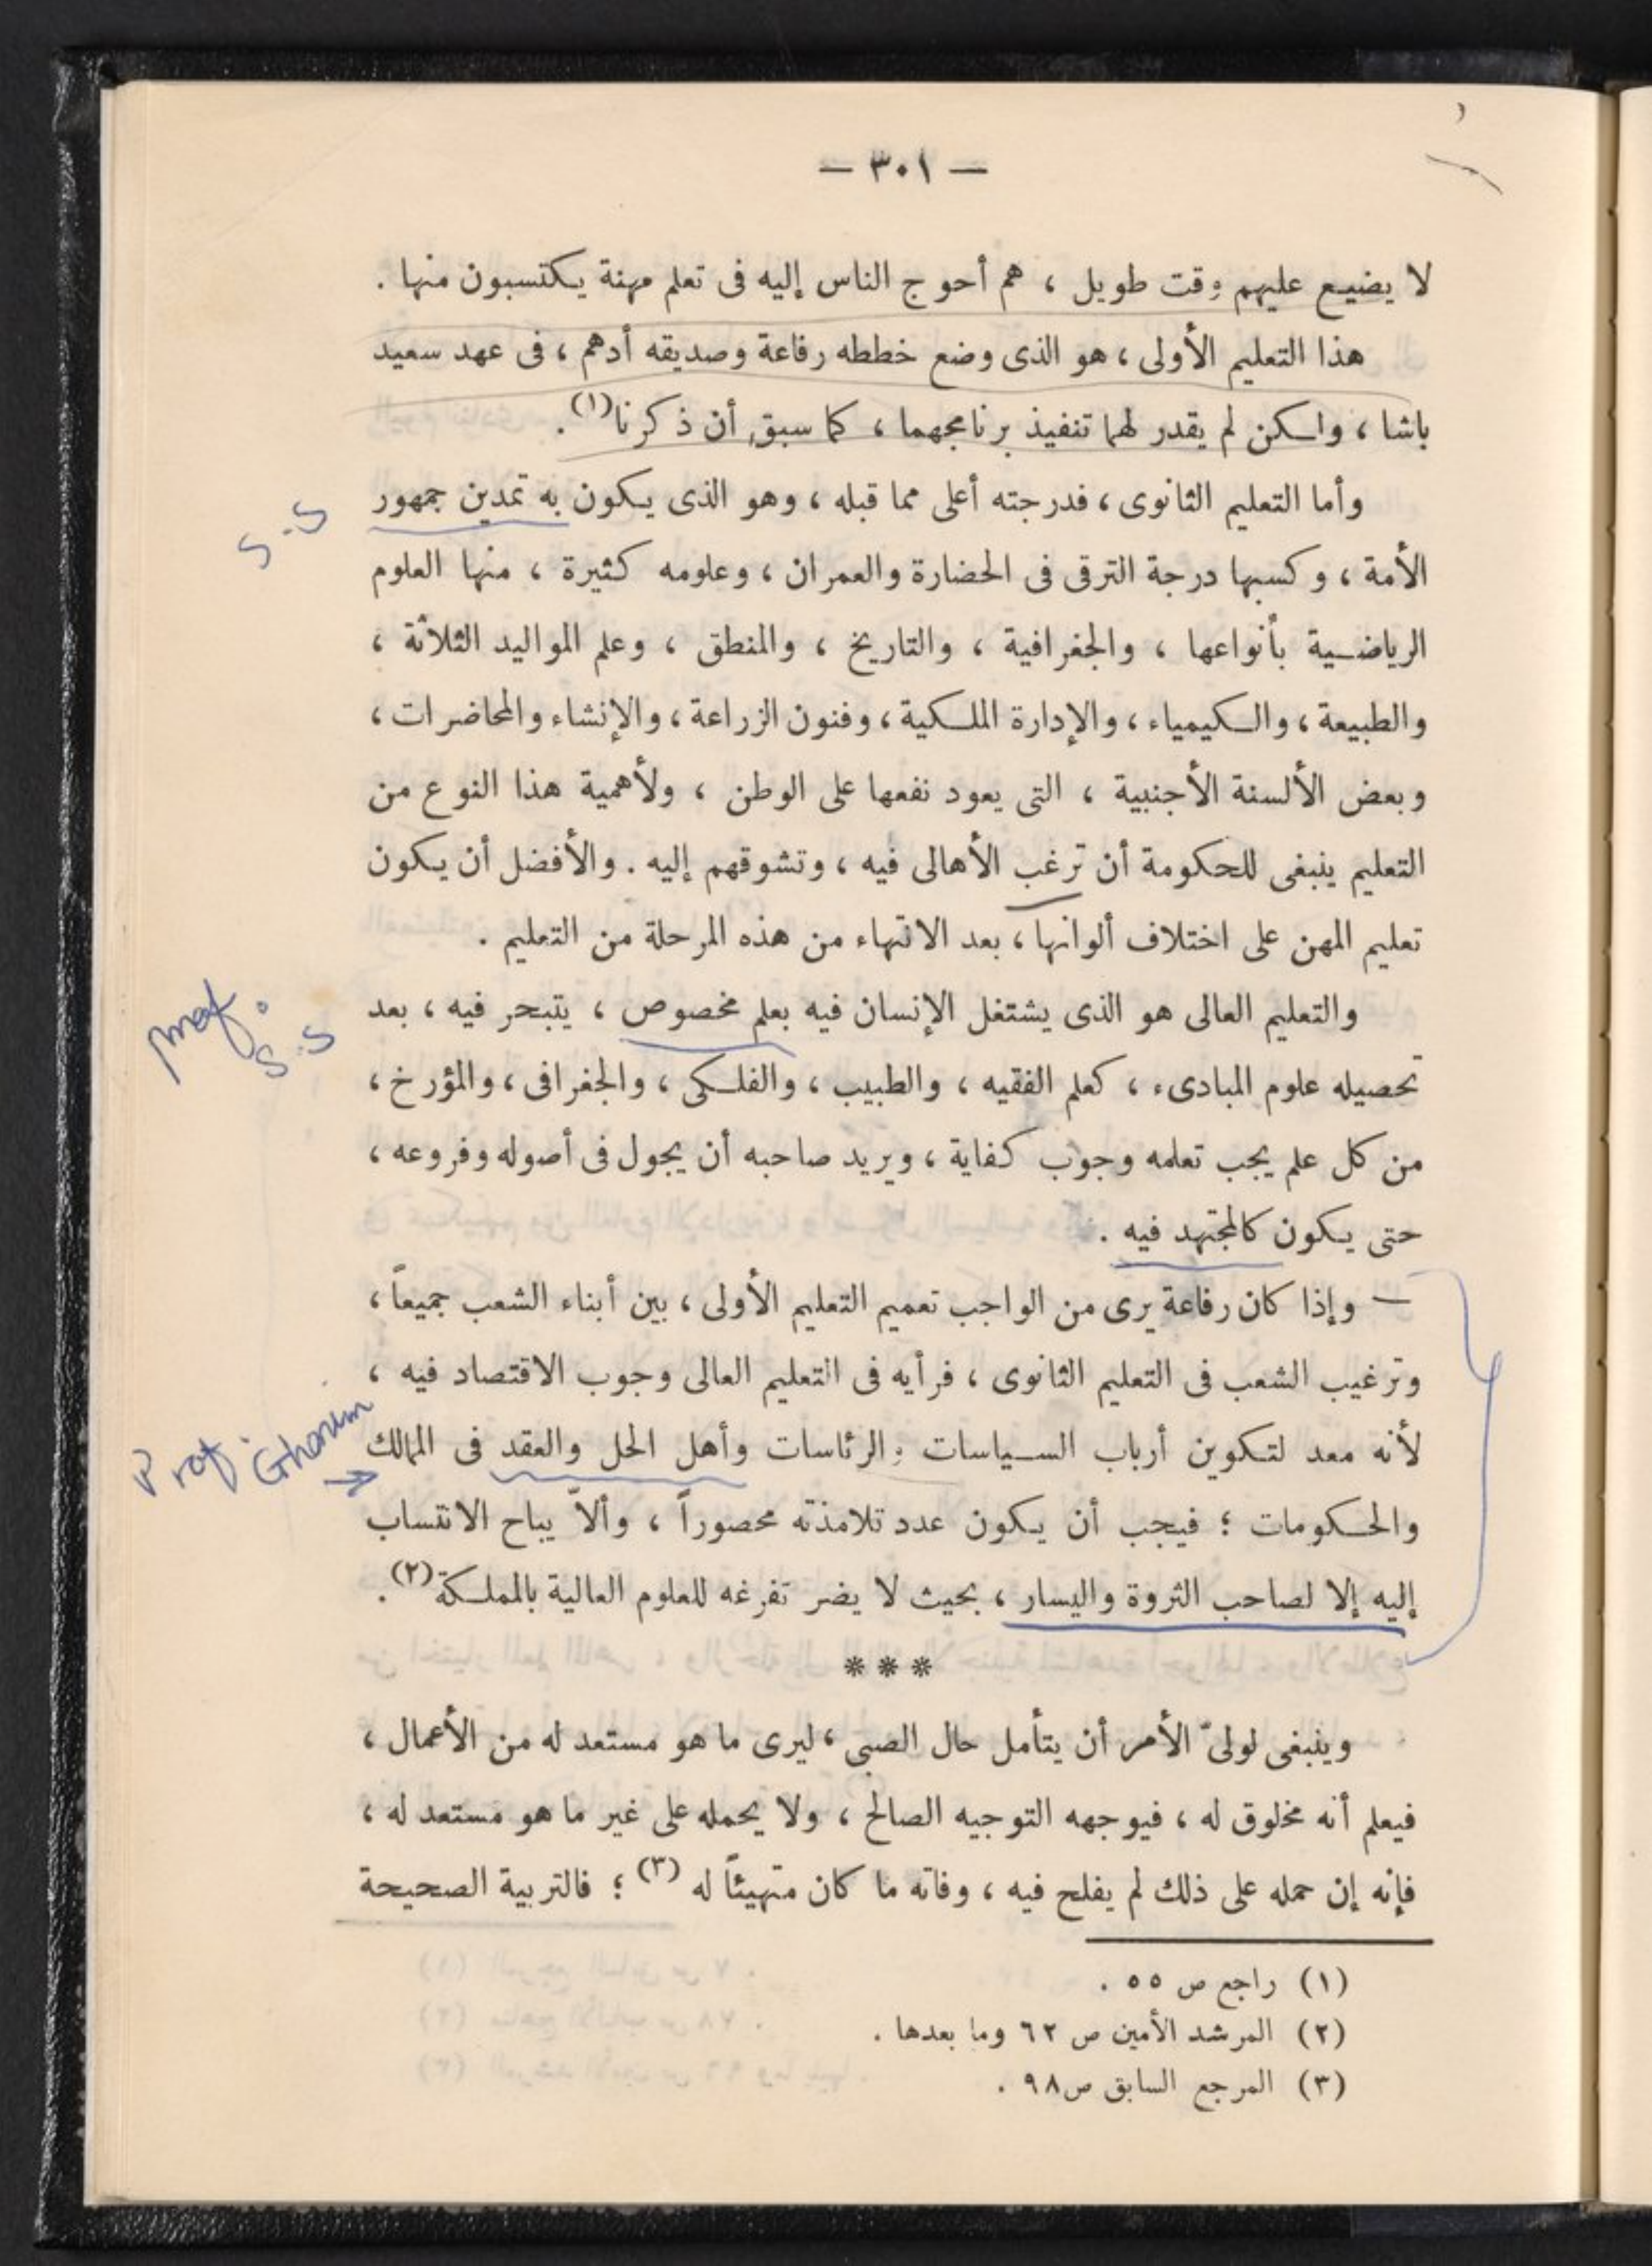 — ٣٠١ —
لا يضيع عليهم وقت طويل ، هم أحوج الناس إليه فى تعلم مهنة يكتسبون منها .
هذا التعليم الأولى ، هو الذى وضع خططه رفاعة وصديقه أدهم ، فى عهد سعيد
باشا ، ولكن لم يقدر لهما تنفيذ برنامجهما ، كما سبق أن ذكرنا(١).
وأما التعليم الثانوى ، فدرجته أعلى مما قبله ، وهو الذى يكون به تمدين جمهور
S.S
الأمة ، وكسبها درجة الترقى فى الحضارة والعمران ، وعلومه كثيرة ، منها العلوم
الرياضية بأنواعها ، والجغرافية ، والتاريخ ، والمنطق ، وعلم المواليد الثلاثة ،
والطبيعة ، والكيمياء ، والإدارة الملكية ، وفنون الزراعة ، والإنشاء والمحاضرات ،
وبعض الألسنة الأجنبية ، التى يعود نفعها على الوطن ، ولأهمية هذا النوع من
التعليم ينبغى للحكومة أن ترغب الأهالى فيه ، وتشوقهم إليه . والأفضل أن يكون
تعليم المهن على اختلاف ألوانها ، بعد الانتهاء من هذه المرحلة من التعليم .
والتعليم العالى هو الذى يشتغل الإنسان فيه بعلم مخصوص ، يتبحر فيه ، بعد
S.S
تحصيله علوم المبادىء ، كعلم الفقيه ، والطبيب ، والفلكى ، والجغرافى ، والمؤرخ ،
من كل علم يجب تعلمه وجوب كفاية ، ويريد صاحبه أن يجول فى أصوله وفروعه ،
حتى يكون كالمجتهد فيه .
— وإذا كان رفاعة يرى من الواجب تعميم التعليم الأولى ، بين أبناء الشعب جميعاً ،
وترغيب الشعب فى التعليم الثانوى ، فرأيه فى التعليم العالى وجوب الاقتصاد فيه ،
لأنه معد لتكوين أرباب السياسات والرئاسات وأهل الحل والعقد فى الممالك
Prof. Ghanem →
والحكومات ؛ فيجب أن يكون عدد تلامذته محصوراً ، وألاّ يباح الانتساب
إليه إلا لصاحب الثروة واليسار ، بحيث لا يضر تفرغه للعلوم العالية بالمملكة(٢).
***
وينبغى لولىّ الأمر أن يتأمل حال الصبى ، ليرى ما هو مستعد له من الأعمال ،
فيعلم أنه مخلوق له ، فيوجهه التوجيه الصالح ، ولا يحمله على غير ما هو مستعد له ،
فإنه إن حمله على ذلك لم يفلح فيه ، وفاته ما كان متهيئاً له (٣) ؛ فالتربية الصحيحة
(١) راجع ص ٥٥ .
(٢) المرشد الأمين ص ٦٢ وما بعدها .
(٣) المرجع السابق ص ٩٨ .